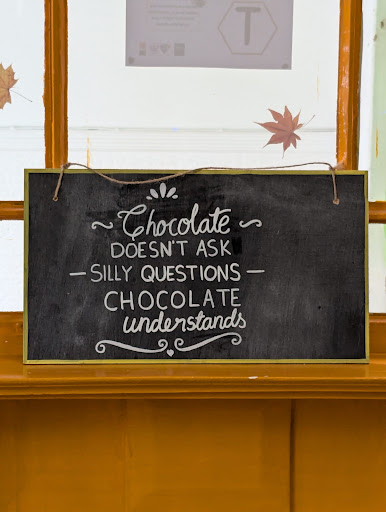 T
Chocolate
DOESN'T ASK
SILLY QUESTIONS
CHOCOLATE
understands